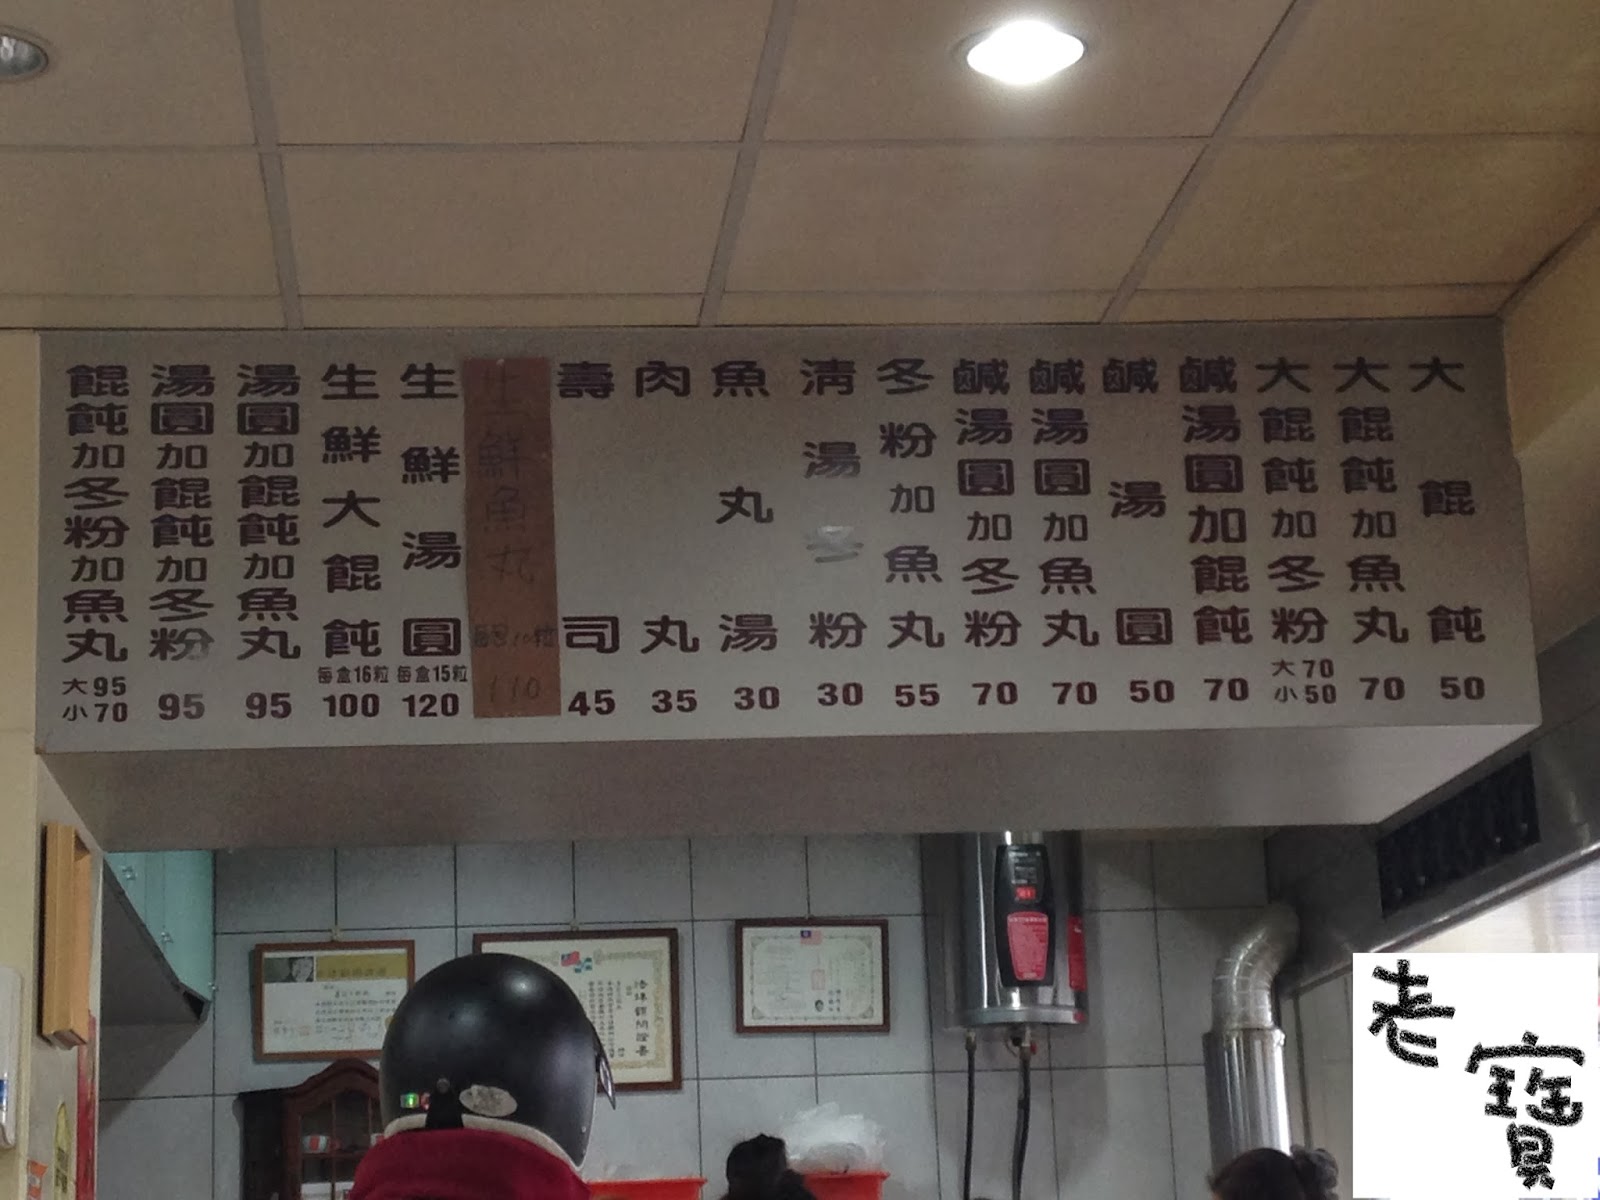 大餛飩 50
大餛飩加魚丸 70
大餛飩加冬粉 大70 小50
鹹湯圓加餛飩 70
鹹湯圓 50
鹹湯圓加魚丸 70
鹹湯圓加冬粉 70
冬粉加魚丸 55
清湯冬粉 30
魚丸湯 30
肉丸 35
壽司 45
生鮮魚丸 110
生鮮湯圓 每盒15粒 120
生鮮大餛飩 每盒16粒 100
湯圓加餛飩加魚丸 95
湯圓加餛飩加冬粉 95
餛飩加冬粉加魚丸 大95 小70
老寶